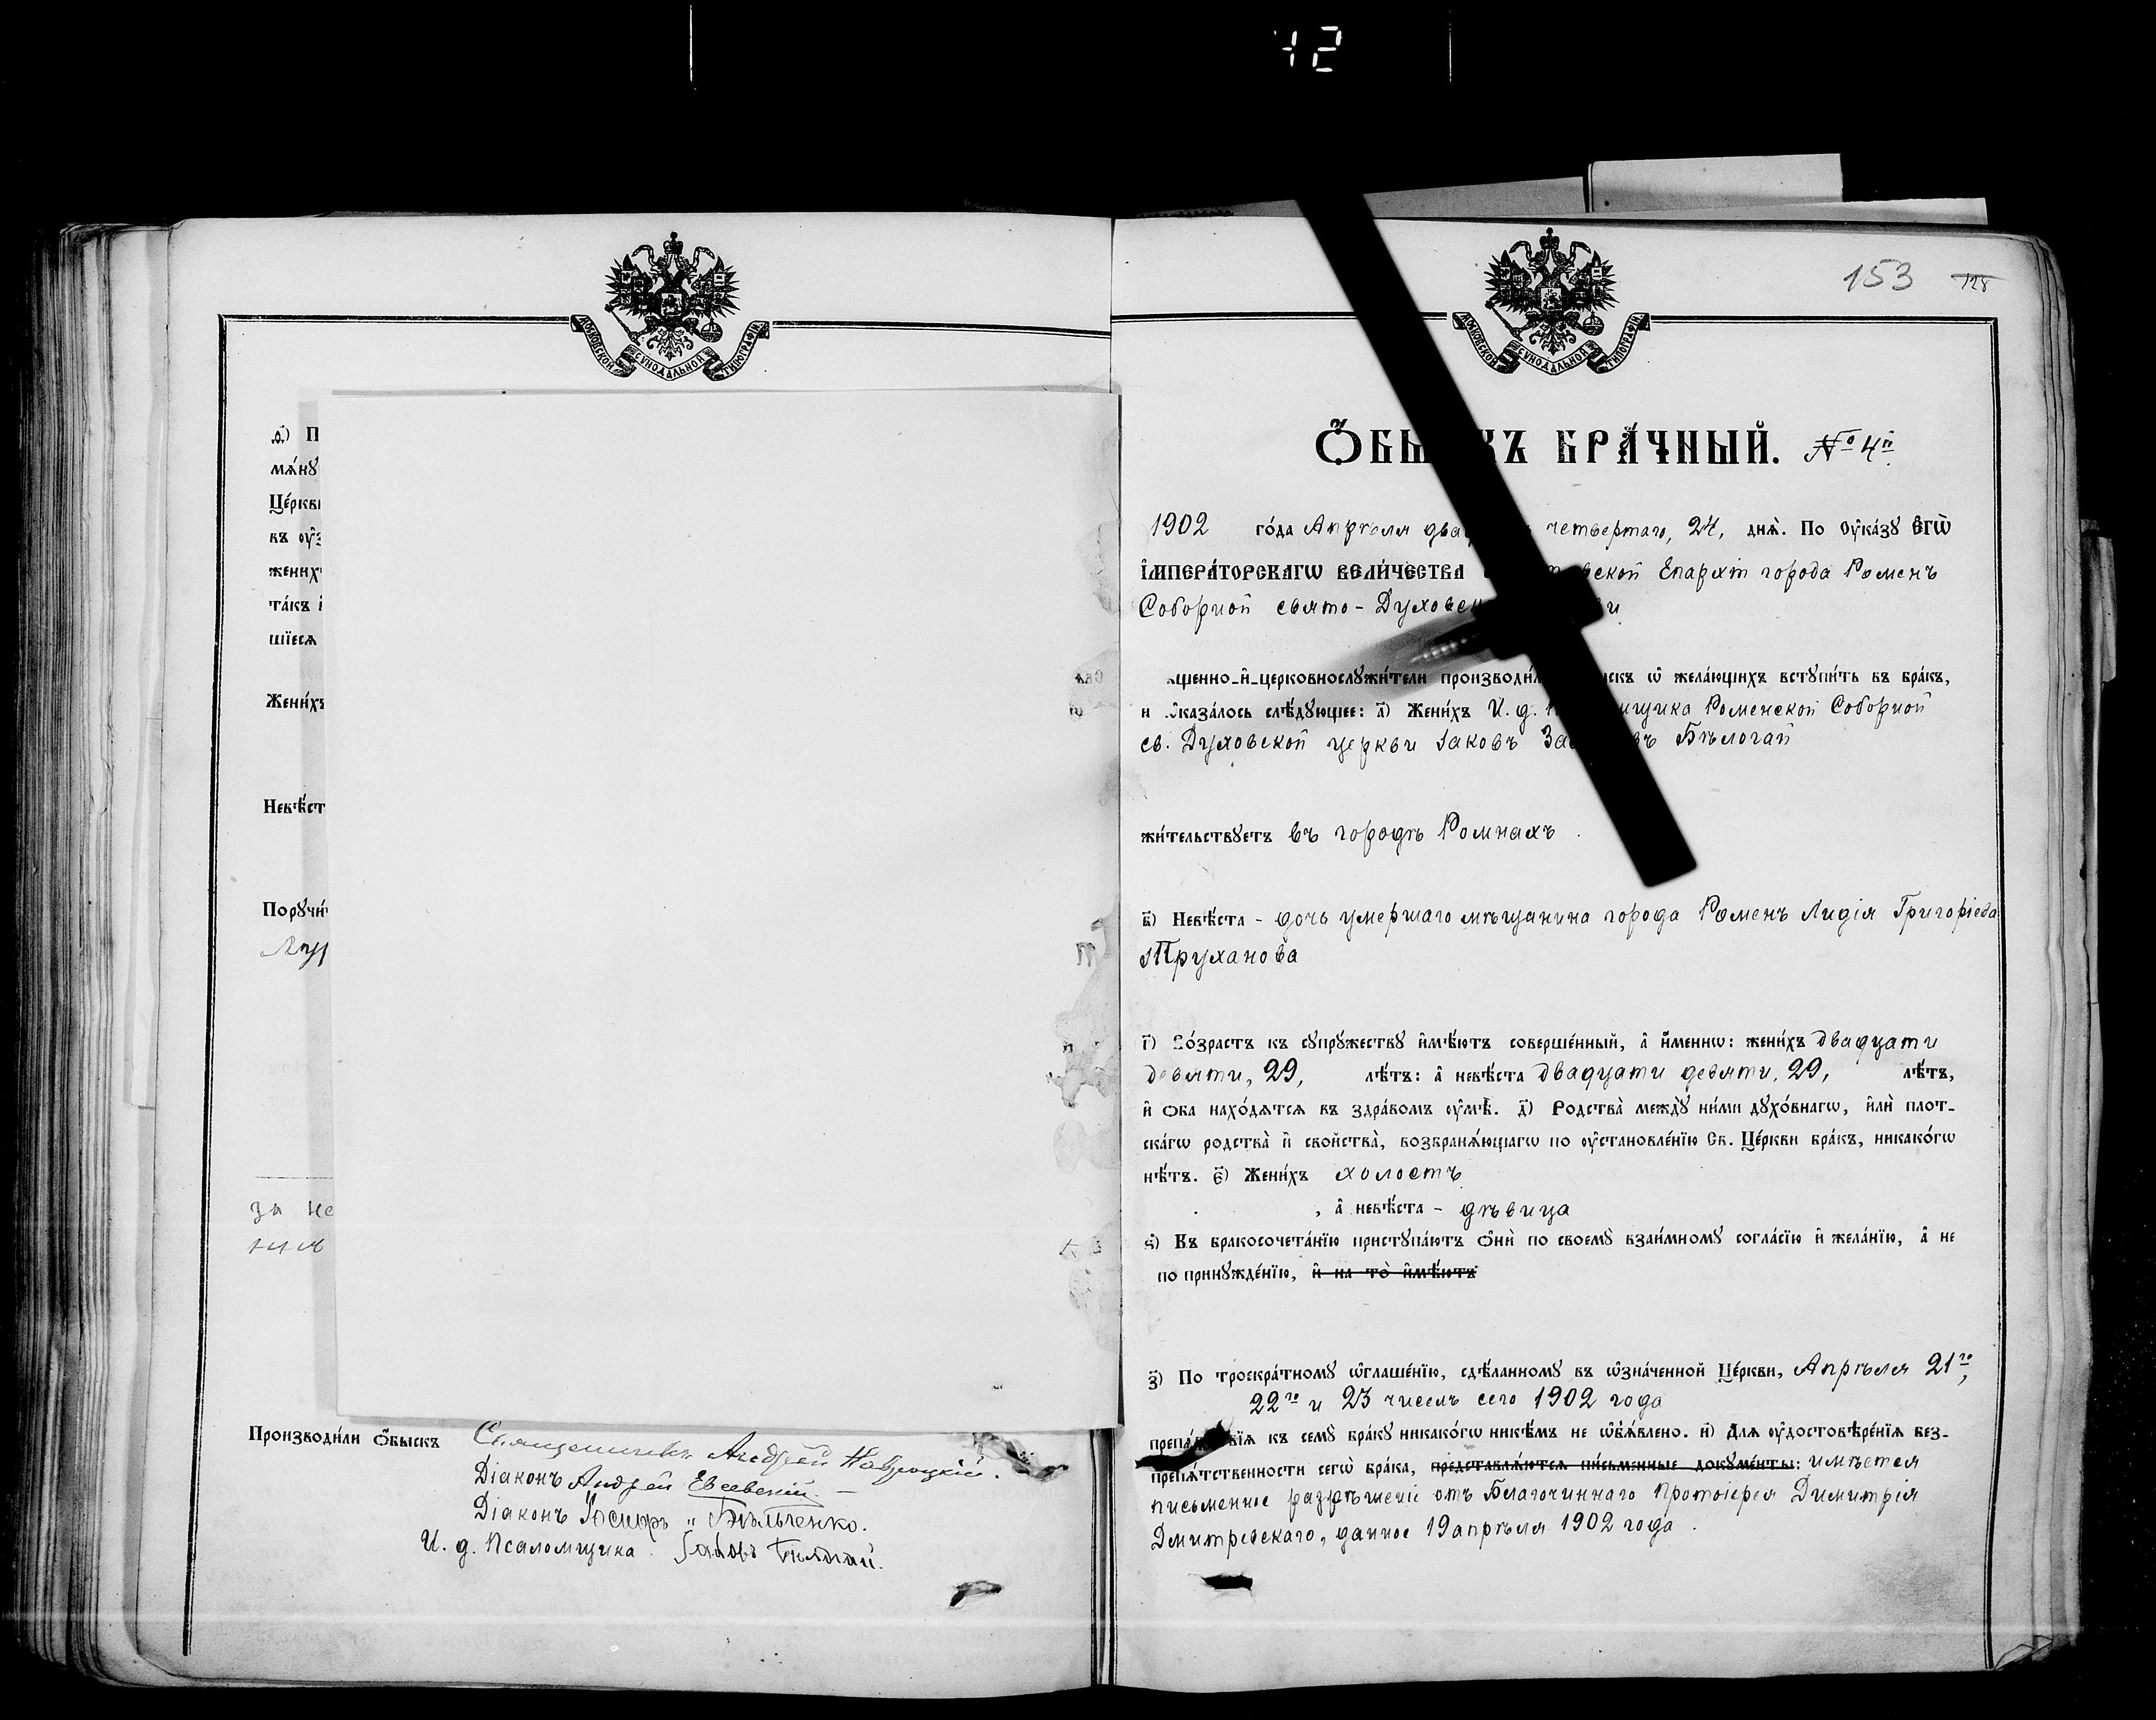 42
МОСКОВСКОЙ СУНОДАЛЬНОЙ ТИПОГРАФІИ
ѳ҃) П
мѧ́нꙋ
Це́ркв
въ оу҆
жених
та́къ
шїесѧ
Жени́хъ
Невѣ́ст
Порꙋчи́
за не
Производи́ли ѻ҆́быскъ Священникъ Андрей Навроцкій.
Діаконъ Андрей Евсевскій.
Діаконъ Іосифъ Бѣльченко.
И. д. Псаломщика Іаковъ Бѣлогай.
153 128
МОСКОВСКОЙ СУНОДАЛЬНОЙ ТИПОГРАФІИ
Ѻ҆БЫ КЪ БРА́ЧНЫЙ. № 4й
1902 го́да Апрѣля два четвертаго, 24, днѧ̀. По оу҆ка́зꙋ Є҆ГѠ̀
И҆МПЕРА́ТОРСКАГѠ ВЕЛИ́ЧЕСТВА вской Епархіи города Роменъ
Соборной свято-Духовск и
щенно-и҆-церковнослꙋжи́тели производи́л искъ ѡ҆ жела́ющихъ встꙋпи́ть въ бра́къ,
и ѡ҆каза́лось слѣ́дꙋющее: а҃) Жени́хъ И. д. П ищика Роменской Соборной
св. Духовской церкви Іаковъ За въ Бѣлогай
жи́тельствꙋетъ въ городѣ Ромнахъ.
в҃) Невѣ́ста - дочь умершаго мѣщанина города Роменъ Лидія Григоріева
Труханова
г҃) Во́зрастъ къ сꙋпрꙋ́жествꙋ и҆мѣ́ютъ соверше́нный, а҆ и҆́меннѡ: жени́хъ двадцати
девяти, 29, лѣ́тъ: а҆ невѣ́ста двадцати девяти, 29, лѣ́тъ,
и҆ ѻ҆ба нахо́дѧтсѧ въ здра́вомъ оу҆мѣ̀. д҃) Родства̀ междꙋ̀ ни́ми дꙋхо́внагѡ, и҆лѝ пло́т-
скагѡ родства̀ и҆ свойства̀, возбранѧ́ющагѡ по оу҆становле́нїю Св. Це́ркви бра́къ, никако́гѡ
нѣ́тъ. є҃) Жени́хъ холостъ
, а҆ невѣ́ста - дѣвица
ѕ҃) Къ бракосочета́нїю пристꙋпа́ютъ ѻ҆нѝ по своемꙋ̀ взаи́мномꙋ согла́сїю и҆ жела́нїю, а҆ не
по принꙋжде́нїю, и҆ на то̀ и҆мѣ́ютъ
з҃) По троекра́тномꙋ ѡ҆глаше́нїю, сдѣ́ланномꙋ въ ѡ҆зна́ченной Це́ркви, Апрѣля 21го,
22го и 23 чиселъ сего 1902 года
препѧ́ вїѧ къ семꙋ̀ бра́кꙋ никако́гѡ ника́къ не ѡ҆б̾ѧ́влено. и҃) Для оу҆достовѣре́нїѧ без-
препѧ́тственности сегѡ̀ бра́ка, представлѧ́ютсѧ пи́сьменные докꙋме́нты: имѣется
письменное разрѣшеніе отъ Благочиннаго Протоіерея Димитрія
Дмитревскаго, данное 19 апрѣля 1902 года.